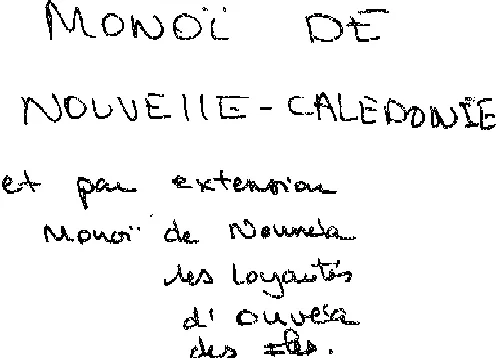 MONOÏ DE
NOUVEllE-CALEDONIE
et par extension
Monoï de Nouméa
les Loyautés
d'Ouvéa
des Iles.